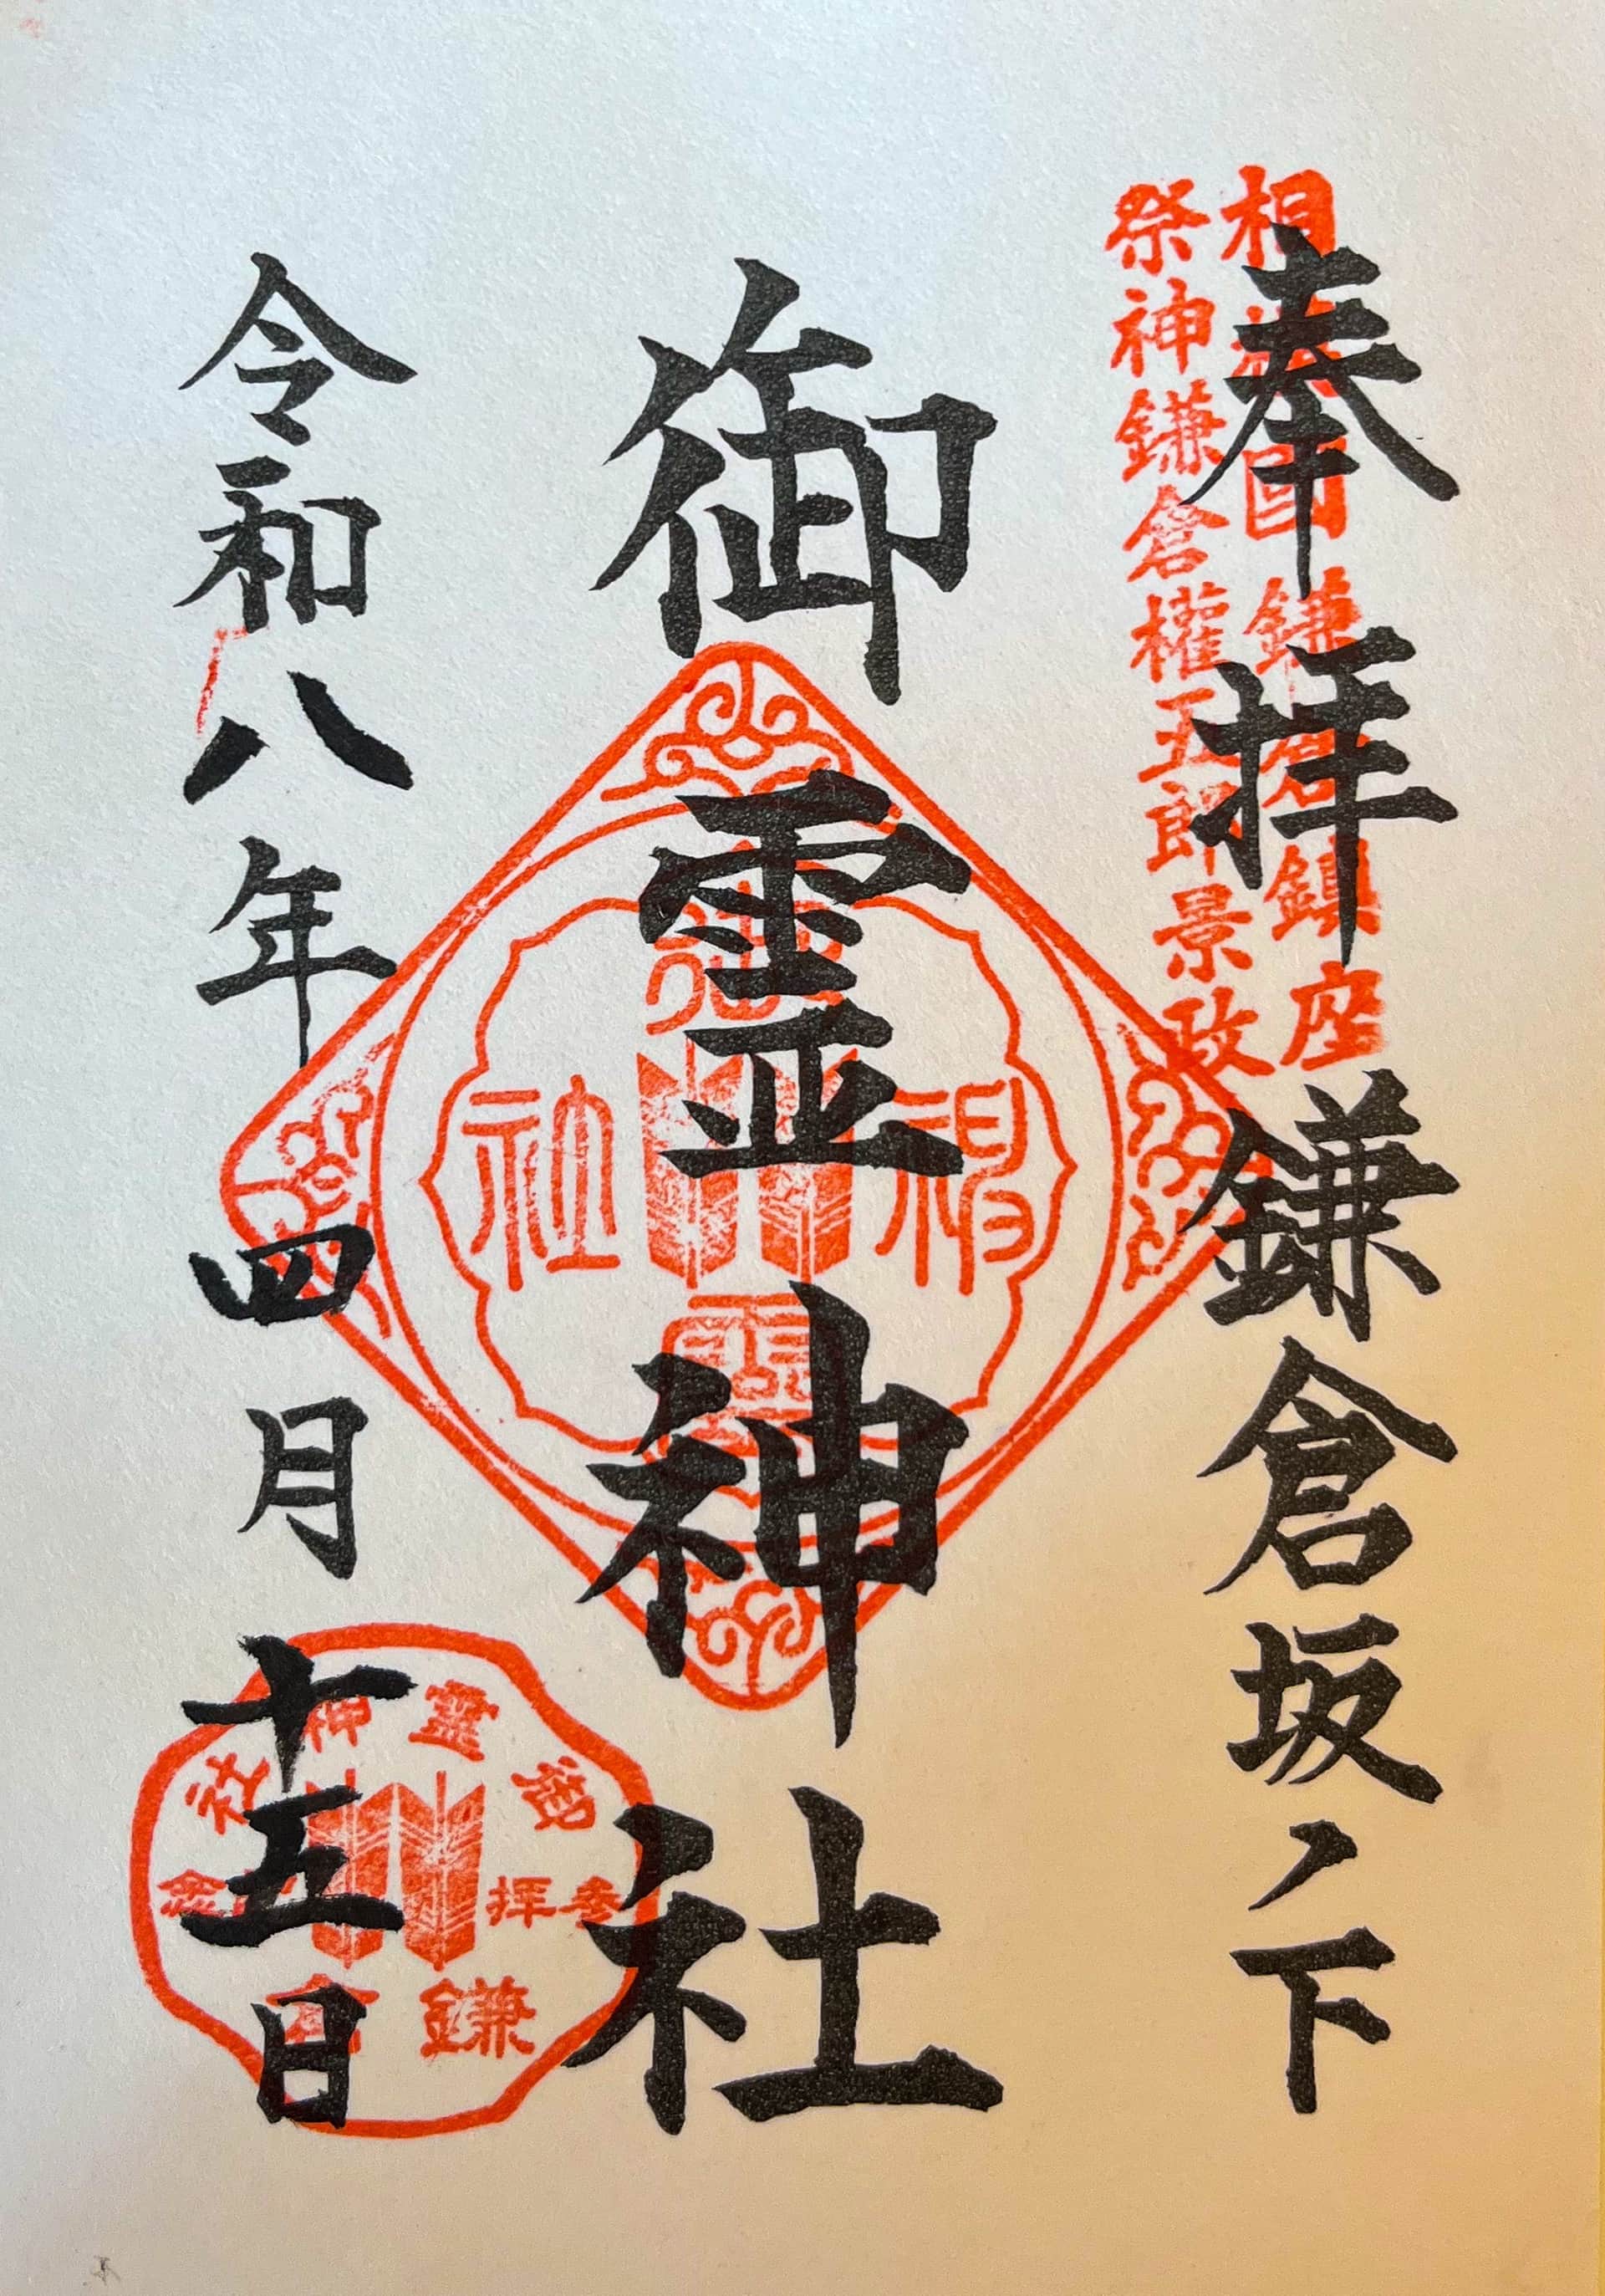 奉拝 鎌倉坂ノ下
相模國 鎌倉鎮座
祭神鎌倉權五郎景政
御霊神社
御靈神社
令和八年四月十五日
御霊神社
参拝
鎌倉